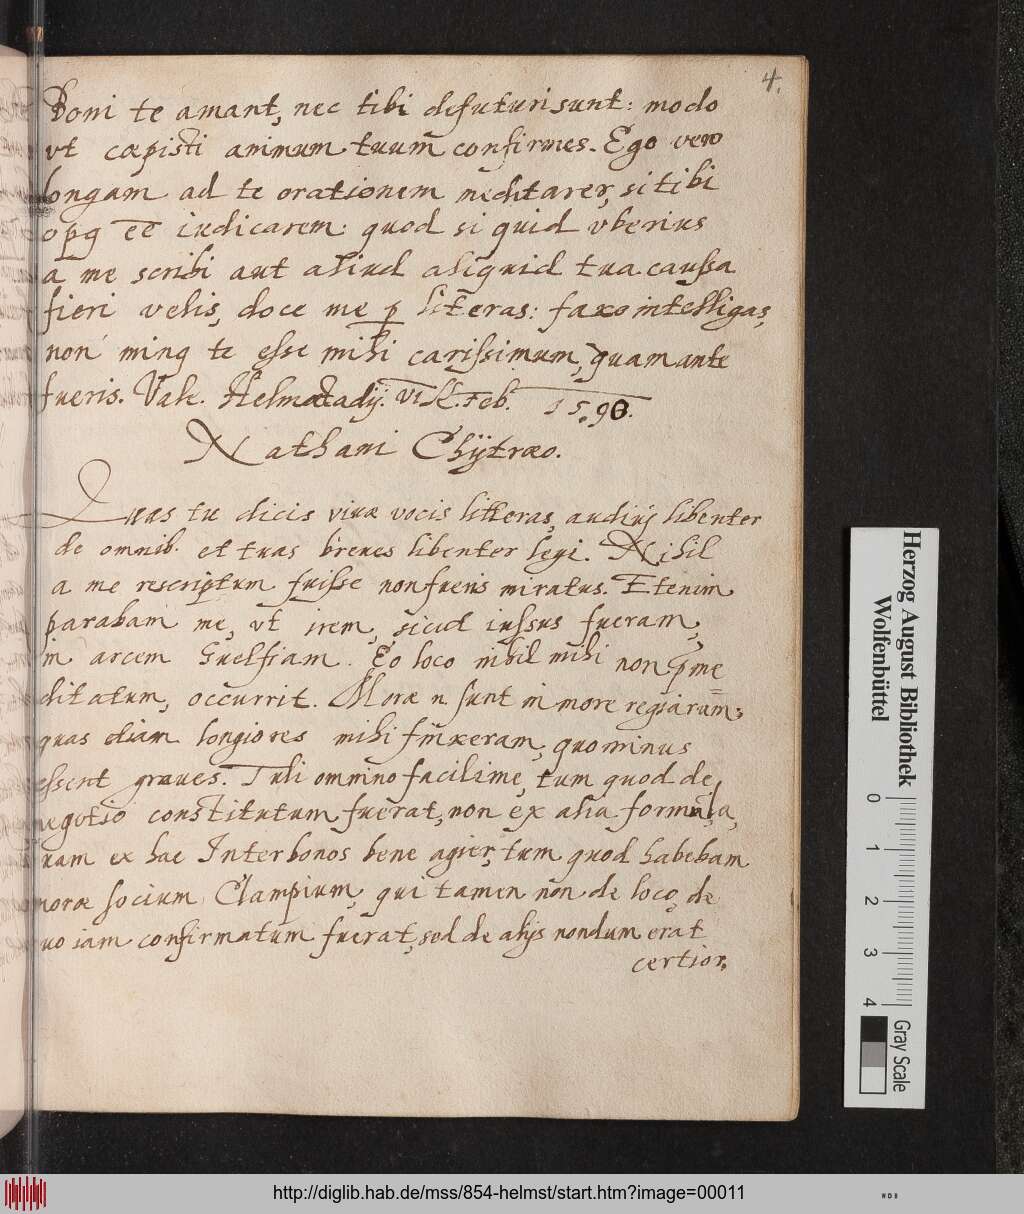 4.
Boni te amant, nec tibi defuturi sunt: modo
vt cœpisti animum tuum confirmes. Ego vero
longam ad te orationem nechtarer, si tibi
opg eē iudicarem: quod si quid vberius
a me scribi aut aliud aliquid tua caussa
fieri velis, doce me p literas: faxo intelligas,
non ming te esse mihi carissimum, quam ante
fueris. Vale. Helmstadij. VI K. Feb. 1590.
Nathani Chÿtræo.
Quas tu dicis viuæ vocis litteras, audiui libenter
de omnib. et tuas breues libenter legi. Nihil
a me rescriptum fuisse non fueris miratus. Etenim
parabam me, vt irem, sicut iussus fueram,
in arcem Guelfiam. Eo loco nihil mihi non præme
ditatum, occurrit. Moræ n. sunt in more regiarum;
quas etiam longiores mihi finxeram, quo minus
essent graues. Tuli omnino facilime, tum quod de
negotio constitutum fuerat, non ex alia formula,
quam ex hac Inter bonos bene agier, tum quod habebam
moræ socium Clampium, qui tamen non de loco, de
quo iam confirmatum fuerat, sed de alijs nondum erat
certior.
Herzog August Bibliothek
Wolfenbüttel
0 1 2 3 4
Gray Scale
http://diglib.hab.de/mss/854-helmst/start.htm?image=00011